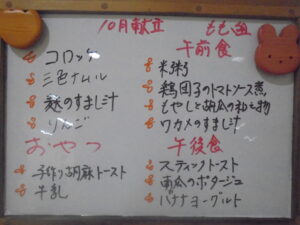 10月献立
もも組
コロッケ
三色ナムル
麸のすまし汁
りんご
おやつ
手作り胡麻トースト
牛乳
午前食
米粥
鶏団子のトマトソース煮
もやしと胡瓜の和え物
ワカメのすまし汁
午後食
スティックトースト
南瓜のポタージュ
バナナヨーグルト